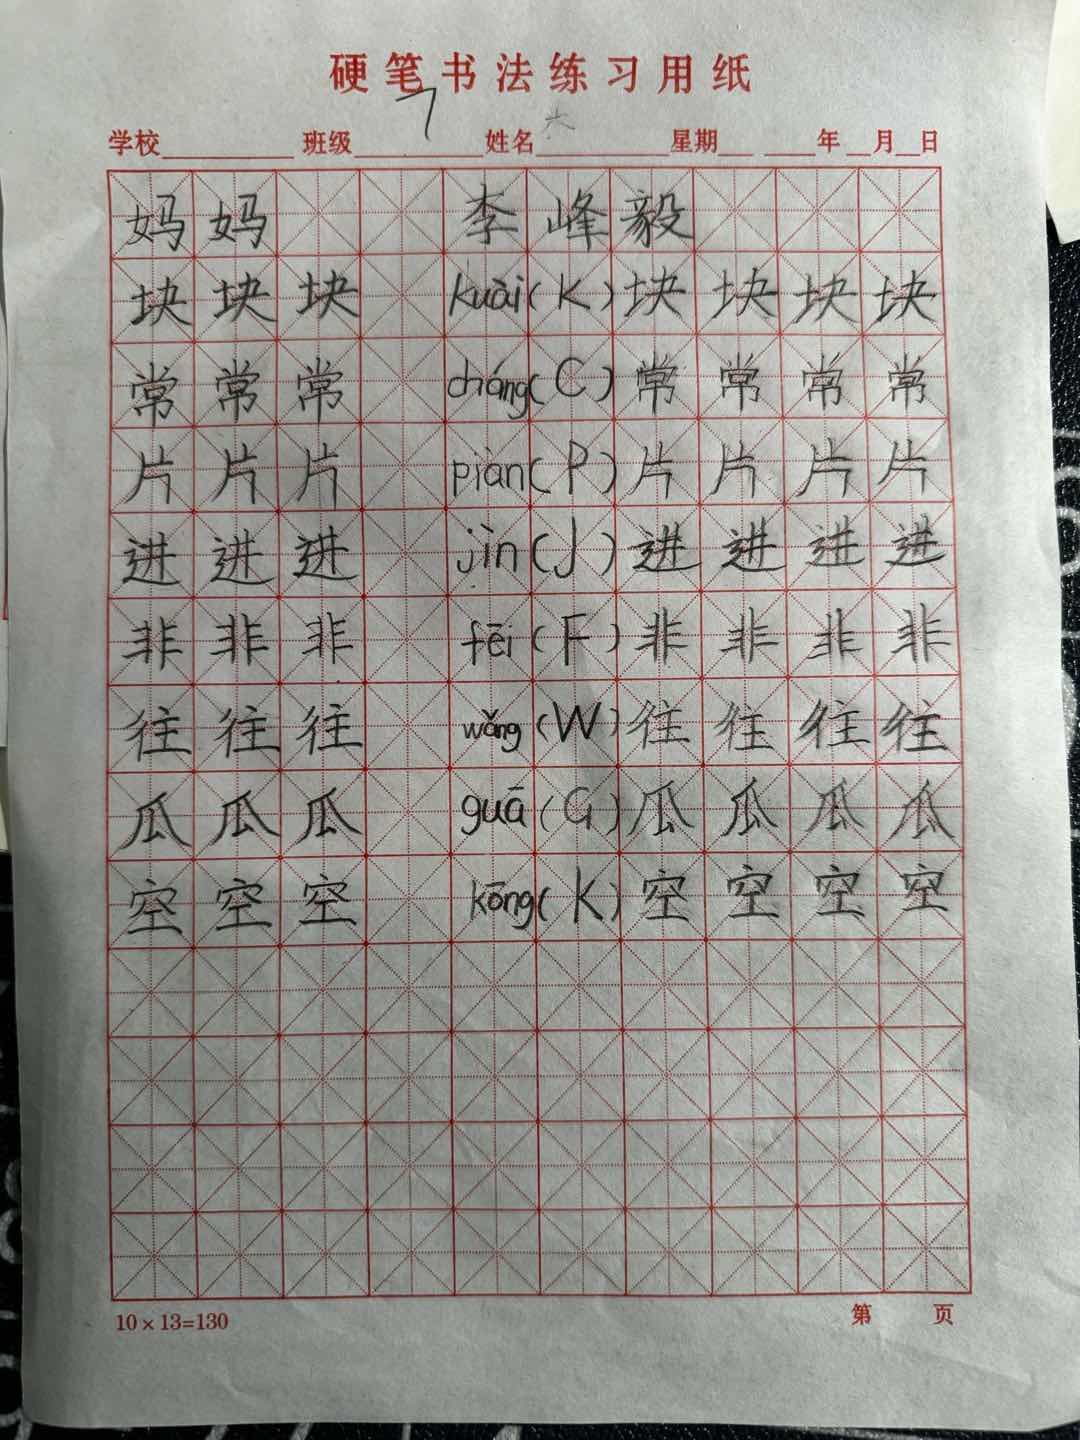 硬笔书法练习用纸
7
学校 班级 姓名 星期 年 月 日
妈 妈 李 峰 毅
块 块 块 kuài(K) 块 块 块 块
常 常 常 cháng(C) 常 常 常 常
片 片 片 piàn(P) 片 片 片 片
进 进 进 jìn(J) 进 进 进 进
非 非 非 fēi(F) 非 非 非 非
往 往 往 wǎng(W) 往 往 往 往
瓜 瓜 瓜 guā(G) 瓜 瓜 瓜 瓜
空 空 空 kōng(K) 空 空 空 空
10×13=130 第 页